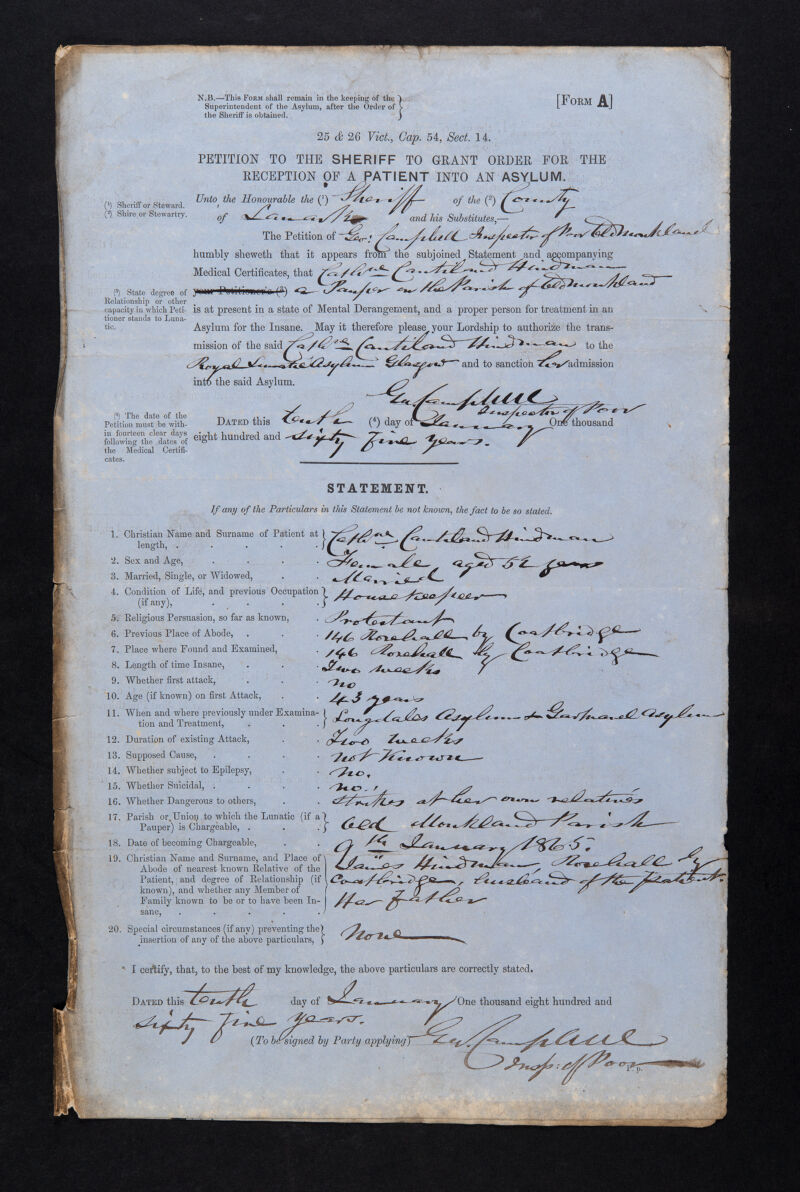 N.B.—This Form shall remain in the keeping of the
Superintendent of the Asylum, after the Order of
the Sheriff is obtained.
[Form A]
25 & 26 Vict., Cap. 54, Sect. 14.
PETITION TO THE SHERIFF TO GRANT ORDER FOR THE
RECEPTION OF A PATIENT INTO AN ASYLUM.
(1) Sheriff or Steward.
(2) Shire or Stewartry.
Unto the Honourable the (1) Sheriff of the (2) County
of Lanark and his Substitutes,—
The Petition of Geo: Campbell Inspector of Poor Old Monkland
humbly sheweth that it appears from the subjoined Statement and accompanying
Medical Certificates, that Cathne Cantiland Hindman
(3) State degree of
Relationship or other
capacity in which Peti-
tioner stands to Luna-
tic.
your Petitioner's (3) a Pauper on the Parish of Old Monkland
is at present in a state of Mental Derangement, and a proper person for treatment in an
Asylum for the Insane. May it therefore please your Lordship to authorize the trans-
mission of the said Cathne Cantiland Hindman to the
Royal Lunatic Asylum Glasgow and to sanction her admission
into the said Asylum.
Geo Campbell
Inspector of Poor
(4) The date of the
Petition must be with-
in fourteen clear days
following the dates of
the Medical Certifi-
cates.
Dated this tenth (4) day of January One thousand
eight hundred and sixty five years.
STATEMENT.
If any of the Particulars in this Statement be not known, the fact to be so stated.
1. Christian Name and Surname of Patient at
length, . Cathne Cantiland Hindman
2. Sex and Age, Female aged 52 years
3. Married, Single, or Widowed, Married
4. Condition of Life, and previous Occupation
(if any), Housekeeper
5. Religious Persuasion, so far as known, Protestant
6. Previous Place of Abode, 146 Rosehall by Coatbridge
7. Place where Found and Examined, 146 Rosehall by Coatbridge
8. Length of time Insane, Two weeks
9. Whether first attack, no
10. Age (if known) on first Attack, 43 years
11. When and where previously under Examina-
tion and Treatment, Longdales Asylum & Gartnavel Asylum
12. Duration of existing Attack, Two weeks
13. Supposed Cause, not known
14. Whether subject to Epilepsy, no.
15. Whether Suicidal, no.
16. Whether Dangerous to others, strikes at her own relatives
17. Parish or Union to which the Lunatic (if a
Pauper) is Chargeable, Old Monkland Parish
18. Date of becoming Chargeable, 9th January 1865.
19. Christian Name and Surname, and Place of
Abode of nearest known Relative of the
Patient, and degree of Relationship (if
known), and whether any Member of
Family known to be or to have been In-
sane,
James Hindman, Rosehall by
Coatbridge, husband of the patient.
Her Father
20. Special circumstances (if any) preventing the
insertion of any of the above particulars, None
I certify, that, to the best of my knowledge, the above particulars are correctly stated.
Dated this tenth day of January One thousand eight hundred and
sixty five years.
(To be signed by Party applying) Geo. Campbell
Insp: of Poor